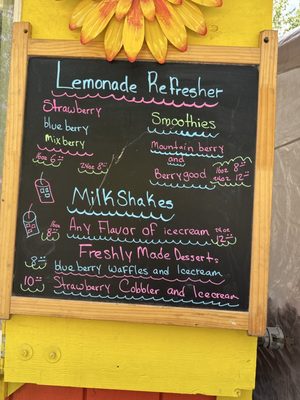 Lemonade Refresher
Strawberry
blueberry
Mixberry
16oz 6.00 24oz 8.00
Smoothies
Mountain berry
and
Berrygood
16oz 8.00
24oz 12.00
MilkShakes
16oz 8.00 Any Flavor of icecream 24oz 12.00
Freshly Made Desserts
8.00 blueberry waffles and Icecream
10.00 Strawberry Cobbler and Icecream